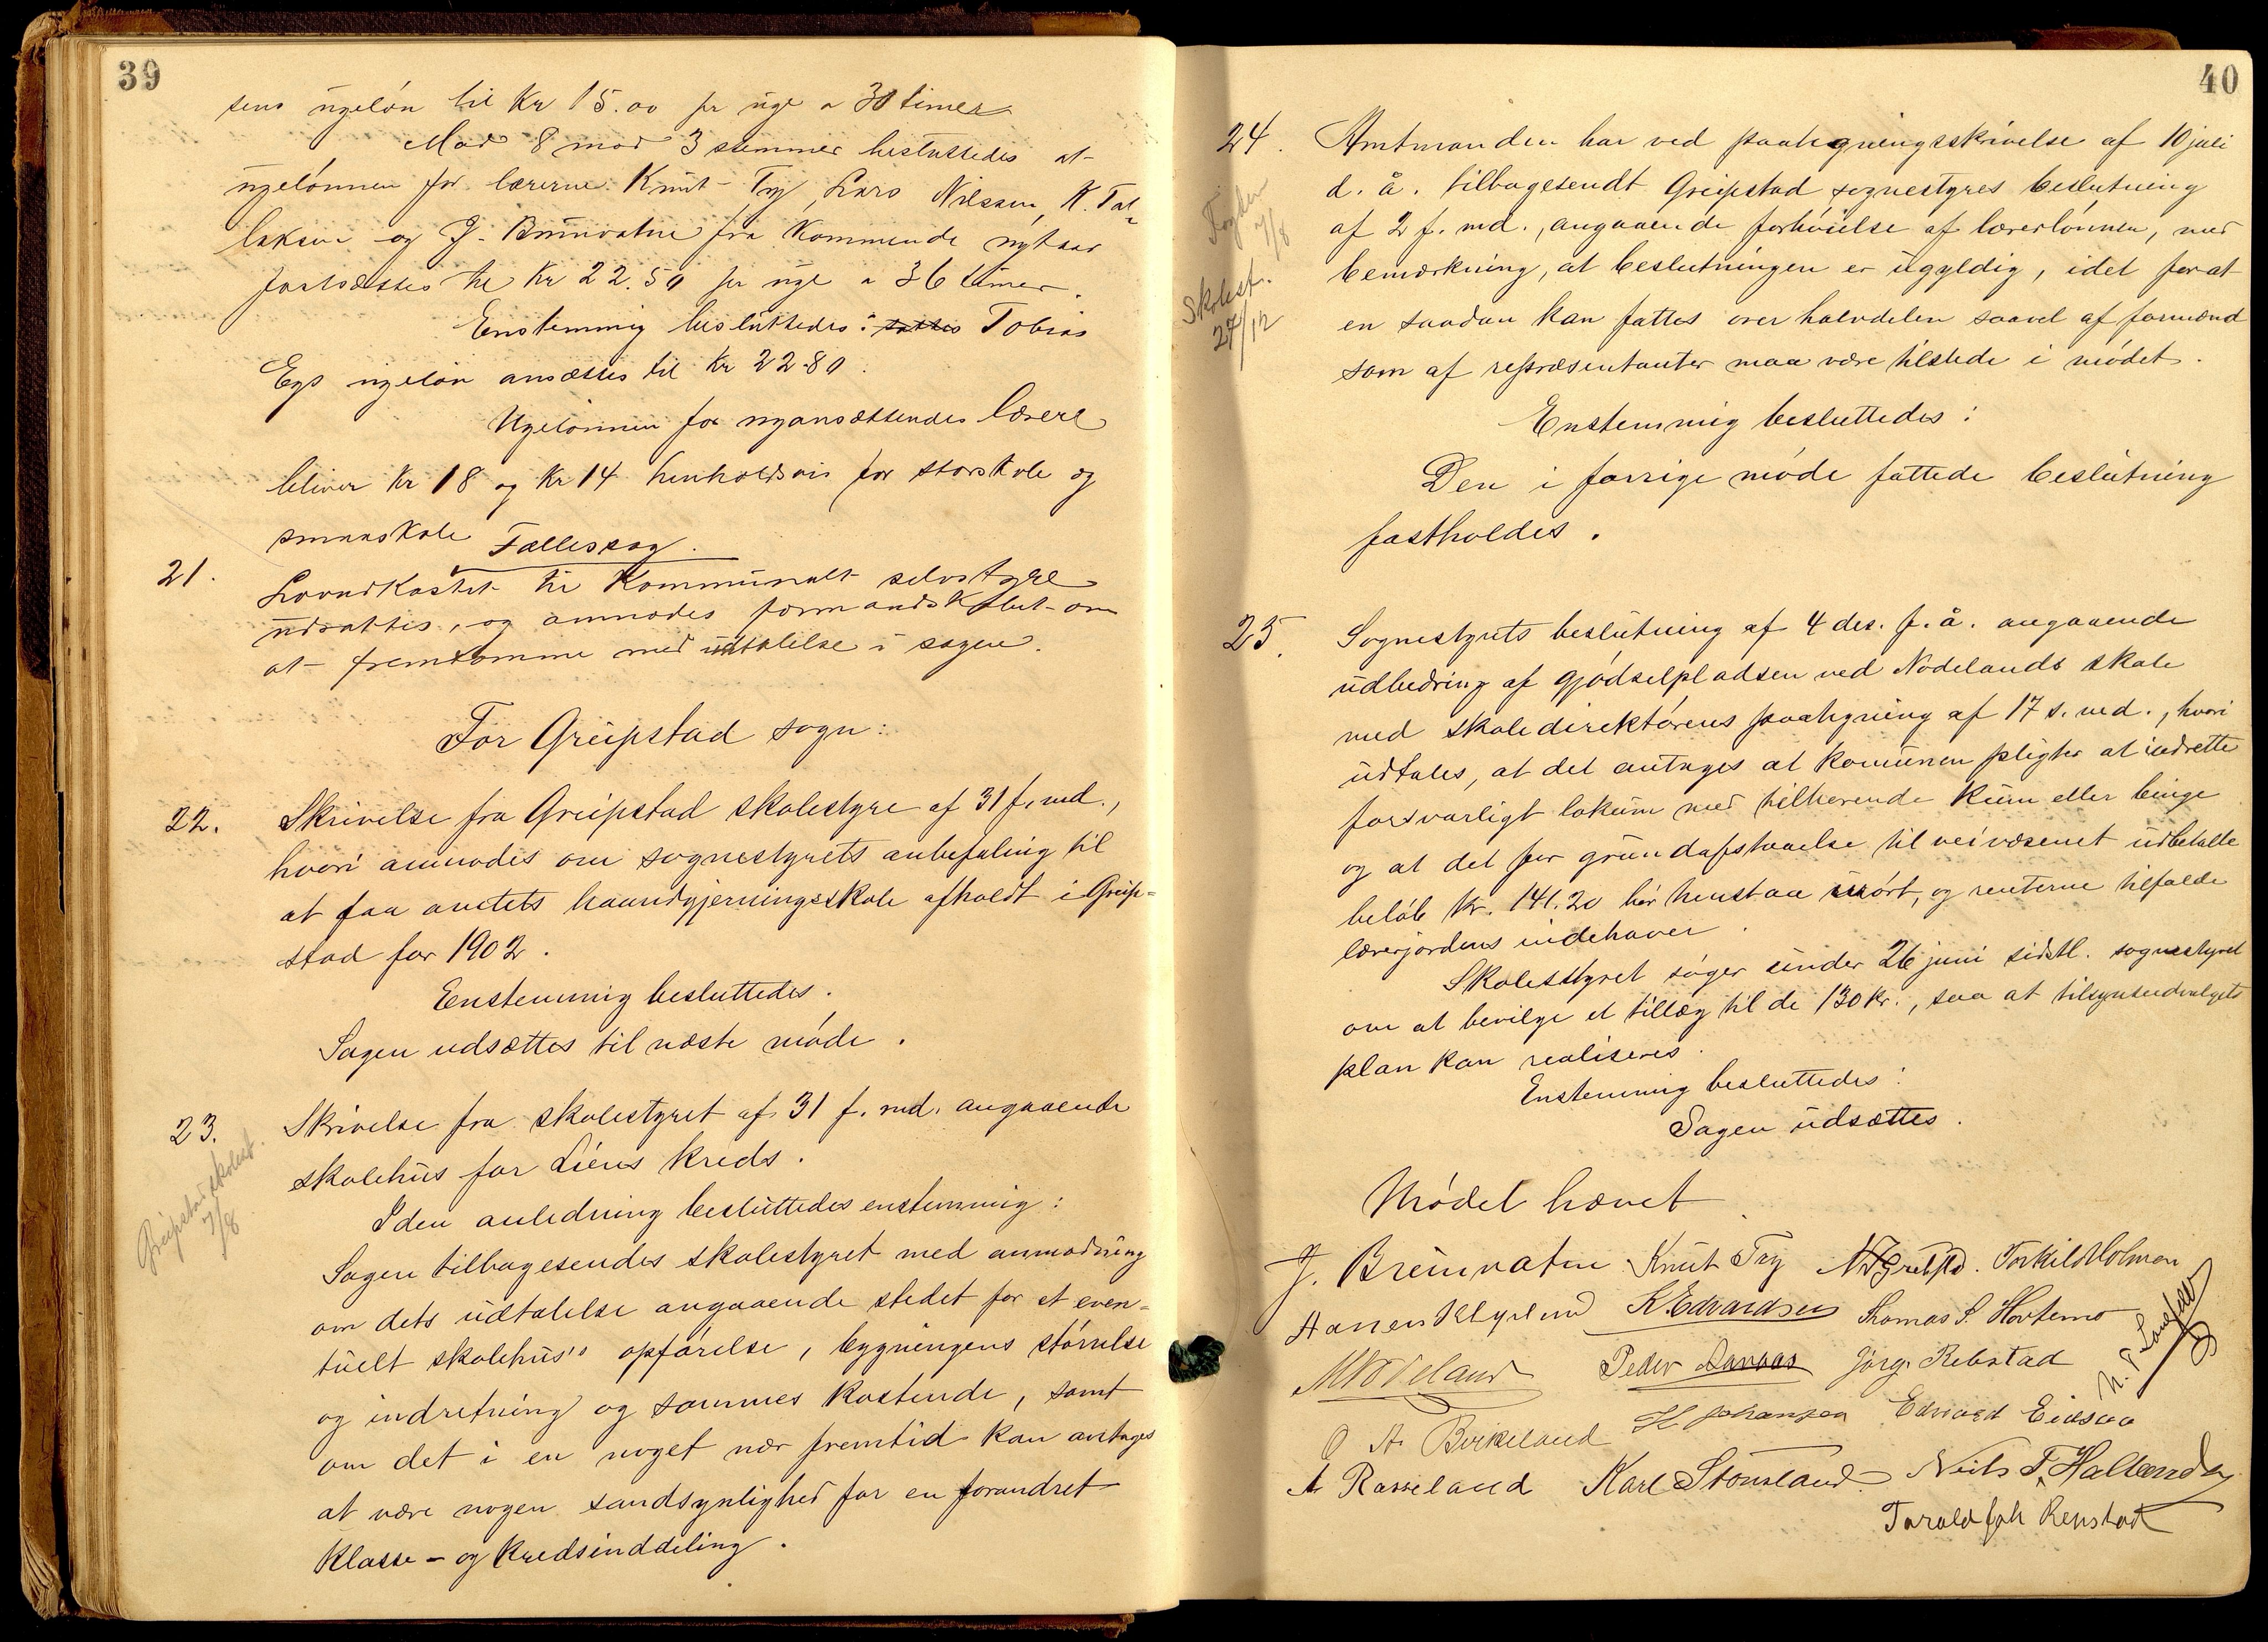 39
sens ugeløn til Kr 15.00 pr uge a 30 timer
Mod 8 mod 3 stemmer besluttedes at
ugelønnen for lærerne Knut Try, Lars Nilssen, K. Tal-
laksen og J. Brunvatne fra Kommende nytaar
fastsættes til Kr 22.50 pr uge a 36 timer.
Enstemmig besluttedes: Tobias
Egs ugeløn ansættes til Kr 22-80.
Ugelønnen for nyansættendes lærere
bliver Kr 18 og Kr 14 henholdsvis for storskole og
smaaskole
Fællessag.
21. Lovudkastet til Kommunalt selvstyre
udsættes, og anmodes formandskabet om
at fremkomme med udtalelse i sagen.
For Greipstad sogn:
22. Skrivelse fra Greipstad skolestyre af 31 f. md.,
hvori anmodes om sognestyrets anbefaling til
at faa amtets haandgjerningsskole afholdt i Greip=
stad for 1902.
Enstemmig besluttedes.
Sagen udsættes til næste møde.
23. Skrivelse fra skolestyret af 31 f. md. angaaende
skolehus for Liens kreds.
Greipstad skolest.
7/8
I den anledning besluttedes enstemmig:
Sagen tilbagesendes skolestyret med anmodning
om dets udtalelse angaaende stedet for et even=
tuelt skolehus's opførelse, bygningens størrelse
og indretning og sammes kostende, samt
om det i en noget nær fremtid kan antages
at være nogen sandsynlighed for en forandret
Klasse- og Kredsinddeling.
40
24. Amtmanden har ved paategningsskrivelse af 10 juli
d. å. tilbagesendt Greipstad sognestyres beslutning
af 2 f. md., angaaende forhøielse af lærerlønnen, med
bemærkning, at beslutningen er ugyldig, idet for at
en saadan kan fattes over halvdelen saavel af formænd
som af repræsentanter maa være tilstede i mødet.
Fogden
7/8
Skolest.
27/12
Enstemmig besluttedes:
Den i forrige møde fattede beslutning
fastholdes.
25. Sognestyrets beslutning af 4 des. f. å. angaaende
udbedring af gjødselpladsen ved Nodelands skole
med skoledirektørens paategning af 17 s. md., hvori
udtales, at det antages at komunen pligter at indrette
forsvarligt lokum med tilhørende kum eller binge
og at det for grundafstaaelse til veivæsenet udbetalte
beløb Kr. 141.20 bør henstaa urørt, og renterne tilfalde
lærerjordens indehaver.
Skolestyret søger under 26 juni sidstl. sognestyret
om at bevilge et tillæg til de 130 kr., saa at tilsynsudvalgets
plan kan realiseres.
Enstemmig besluttedes:
Sagen udsættes.
Mødet hævet
J. Brunvatne Knut Try Torkild Holmen
K. Edvardsen Thomas S. Hortemo
Peder Aanaas Jørg. Rebstad
O A Birkeland H Johansen Edvard Eidsaa
A Rasseland Karl Stousland Neils T. Hallandsg
Tarald Joh Repstad